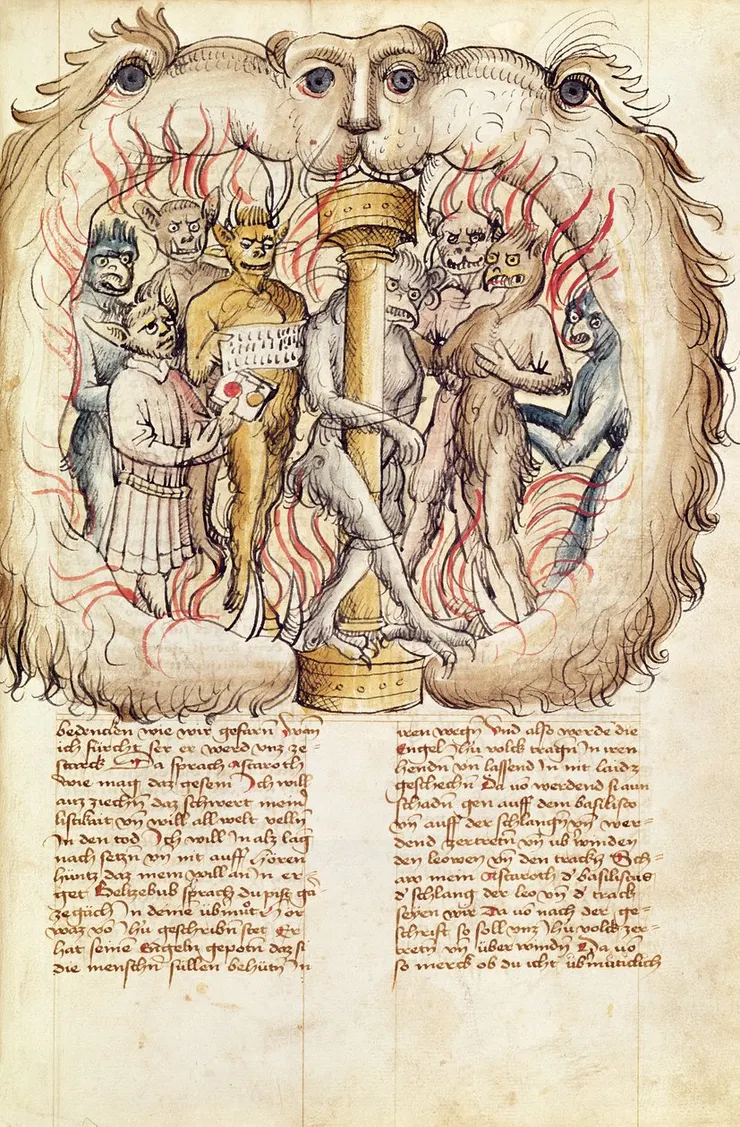 bedencken wie wir gefarn Wan
ich fürcht ser er werd vnz ze
starck Da sprach Astaroth
wie mag daz gesein Ich will
auz ziechn daz schwert meiner
listikait vn̄ will all welt velln
In den tod Ich will In alz lag
nach setzn vn̄ nit auff hören
huntz daz mein will an In er=
get Belizebub sprach du pist
In deine übmut
waz vō Ihū geschribn stet Er
hat seine Engeln gepotn daz si
die menschn̄ süllen behütn In
iren wegn Vnd also werde die
Engel Ihū volck tragn In iren
hendn vn̄ lassend In nit laidz
geschechn Da vō werdend si aun
schadn gen auff dem basilisco
vn̄ auff der schlangn vn̄ wer=
dend zertretn vn̄ üb winden
den leowen vn̄ den trackn Sch=
aw mein Astaroth d' basiliscus
d' schlang der leo vn̄ d' track
seyen wir Da vō nach der ge=
schrift so soll vnz Ihū volck zer=
tretn vn̄ über windn Da vō
so merck ob du icht übmüticklich